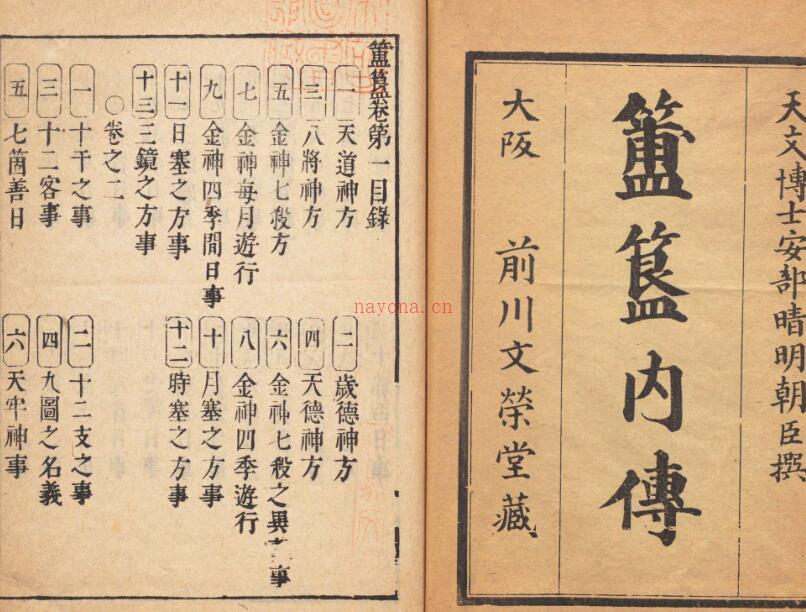 天文博士安部晴明朝臣撰
簠簋内傳
大阪 前川文榮堂藏
簠簋卷第一目錄
一 天道神方 二 歲德神方
三 八將神方 四 天德神方
五 金神七殺方 六 金神七殺之異 事
七 金神每月遊行 八 金神四季遊行
九 金神四季間日事 十 月塞之方事
十一 日塞之方事 十二 時塞之方事
十三 三鏡之方事
○ 卷之二
一 十干之事 二 十二支之事
三 十二客事 四 九圖之名義
五 七箇善日 六 天牢神事
nayona.cn